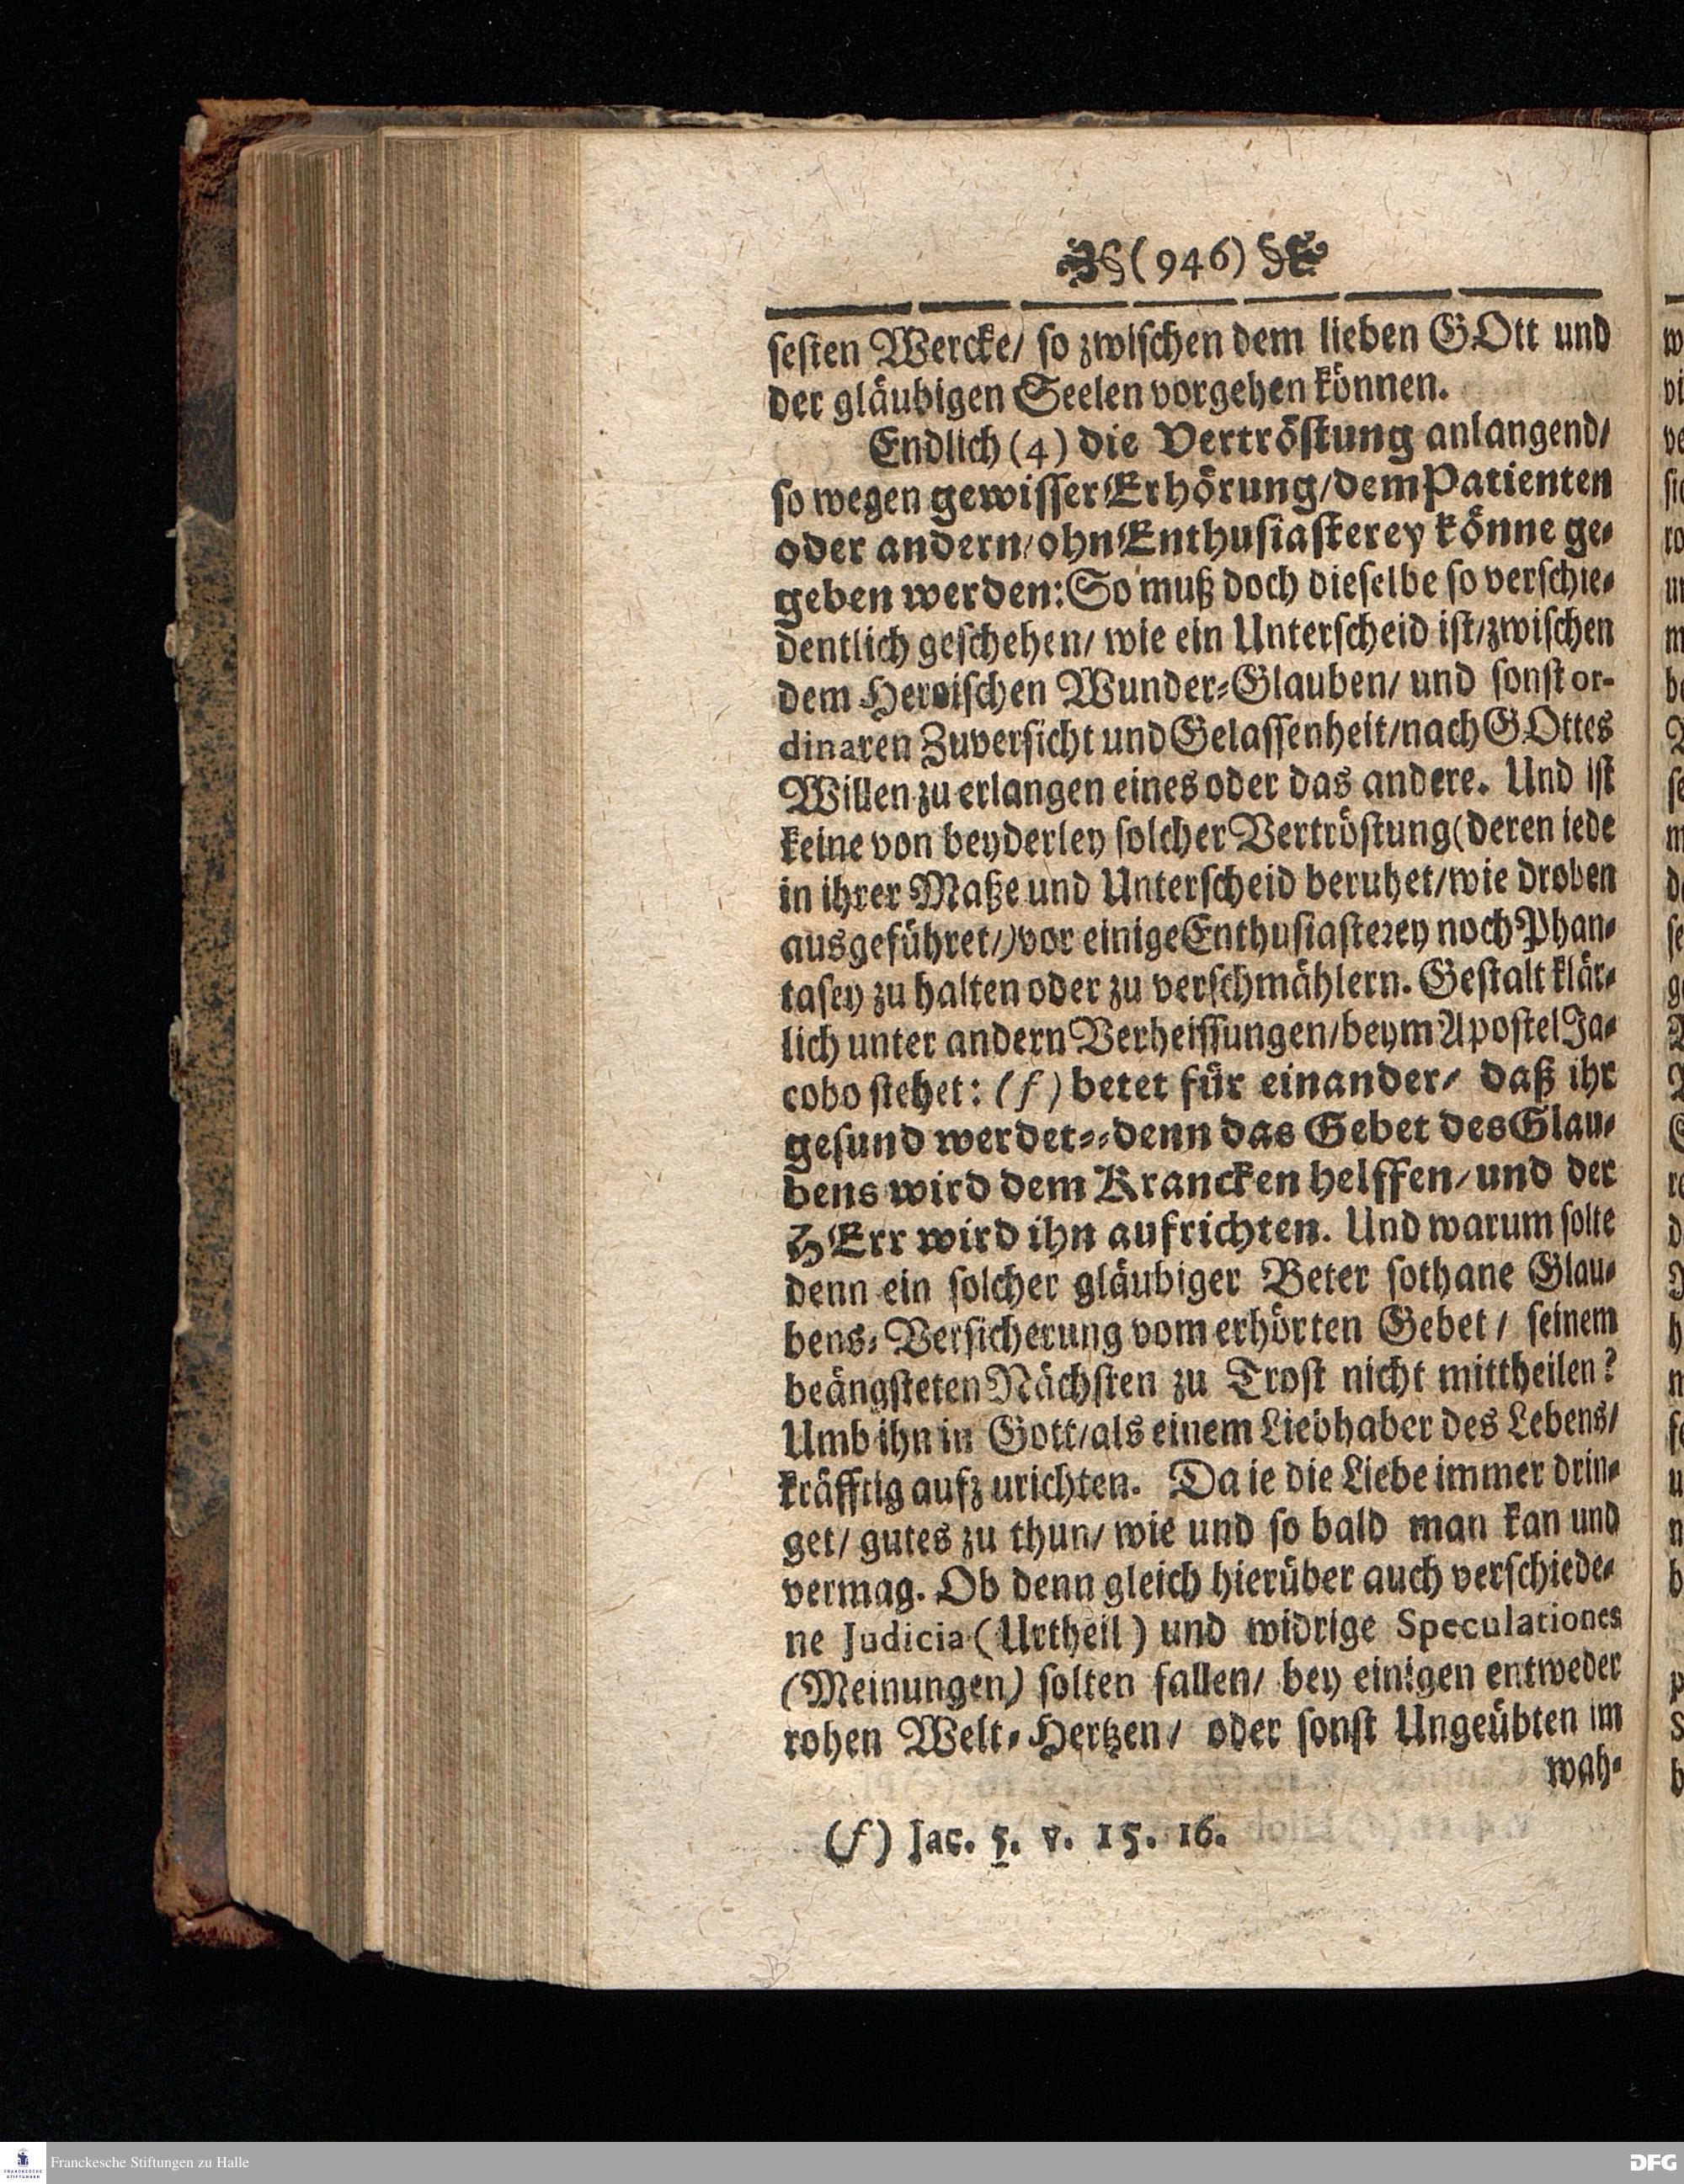 (946)
sesten Wercke/ so zwischen dem lieben GOtt und
der gläubigen Seelen vorgehen können.
Endlich (4) die Vertröstung anlangend/
so wegen gewisser Erhörung/dem Patienten
oder andern/ohn Enthusiasterey könne ge-
geben werden: So muß doch dieselbe so verschie-
dentlich geschehen/ wie ein Unterscheid ist/zwischen
dem Heroischen Wunder-Glauben/ und sonst or-
dinaren Zuversicht und Gelassenheit/nach GOttes
Willen zu erlangen eines oder das andere. Und ist
keine von beyderley solcher Vertröstung(deren iede
in ihrer Maße und Unterscheid beruhet/wie droben
ausgeführet/)vor einige Enthusiasterey noch Phan-
tasey zu halten oder zu verschmählern. Gestalt klär-
lich unter andern Verheissungen/beym Apostel Ja-
cobo stehet: (f) betet für einander/ daß ihr
gesund werdet--denn das Gebet des Glau-
bens wird dem Krancken helffen/und der
HErr wird ihn aufrichten. Und warum solte
denn ein solcher gläubiger Beter sothane Glau-
bens-Versicherung vom erhörten Gebet/ seinem
beängsteten Nächsten zu Trost nicht mittheilen?
Umb ihn in Gott/als einem Liebhaber des Lebens/
kräfftig aufzurichten. Da ie die Liebe immer drin-
get/ gutes zu thun/ wie und so bald man kan und
vermag. Ob denn gleich hierüber auch verschiede-
ne Judicia (Urtheil) und widrige Speculationes
(Meinungen) solten fallen/ bey einigen entweder
rohen Welt-Hertzen/ oder sonst Ungeübten im
wah-
(f) Jac. 5. v. 15. 16.
Franckesche Stiftungen zu Halle
DFG